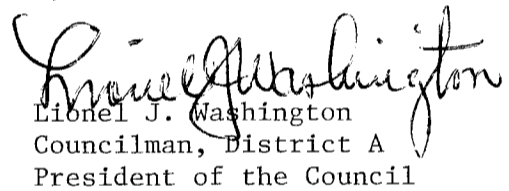 Lionel J. Washington
Lionel J. Washington
Councilman, District A
President of the Council